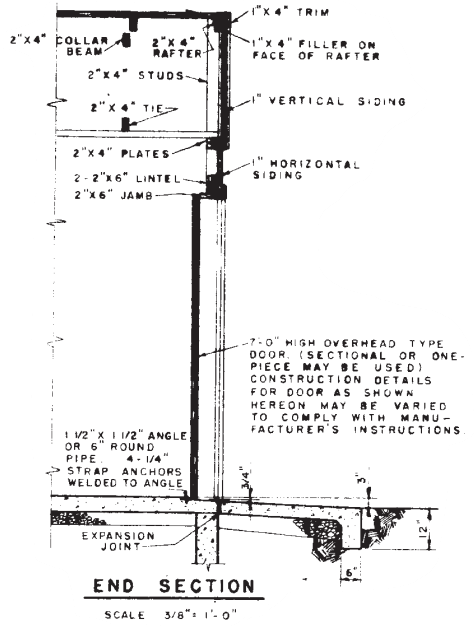 1"X 4" TRIM
2"X 4" COLLAR
BEAM
2"X 4"
RAFTER
1"X 4" FILLER ON
FACE OF RAFTER
2"X 4" STUDS
1" VERTICAL SIDING
2"X 4" TIE
2"X 4" PLATES
1" HORIZONTAL
SIDING
2-2"X6" LINTEL
2"X6" JAMB
7-0" HIGH OVERHEAD TYPE
DOOR. (SECTIONAL OR ONE-
PIECE MAY BE USED)
CONSTRUCTION DETAILS
FOR DOOR AS SHOWN
HEREON MAY BE VARIED
TO COMPLY WITH MANU-
FACTURER'S INSTRUCTIONS.
1 1/2" X 1 1/2" ANGLE
OR 6" ROUND
PIPE. 4-1/4"
STRAP ANCHORS
WELDED TO ANGLE
3/4"
3"
12"
EXPANSION
JOINT
6"
END SECTION
SCALE 3/8" = 1'-0"